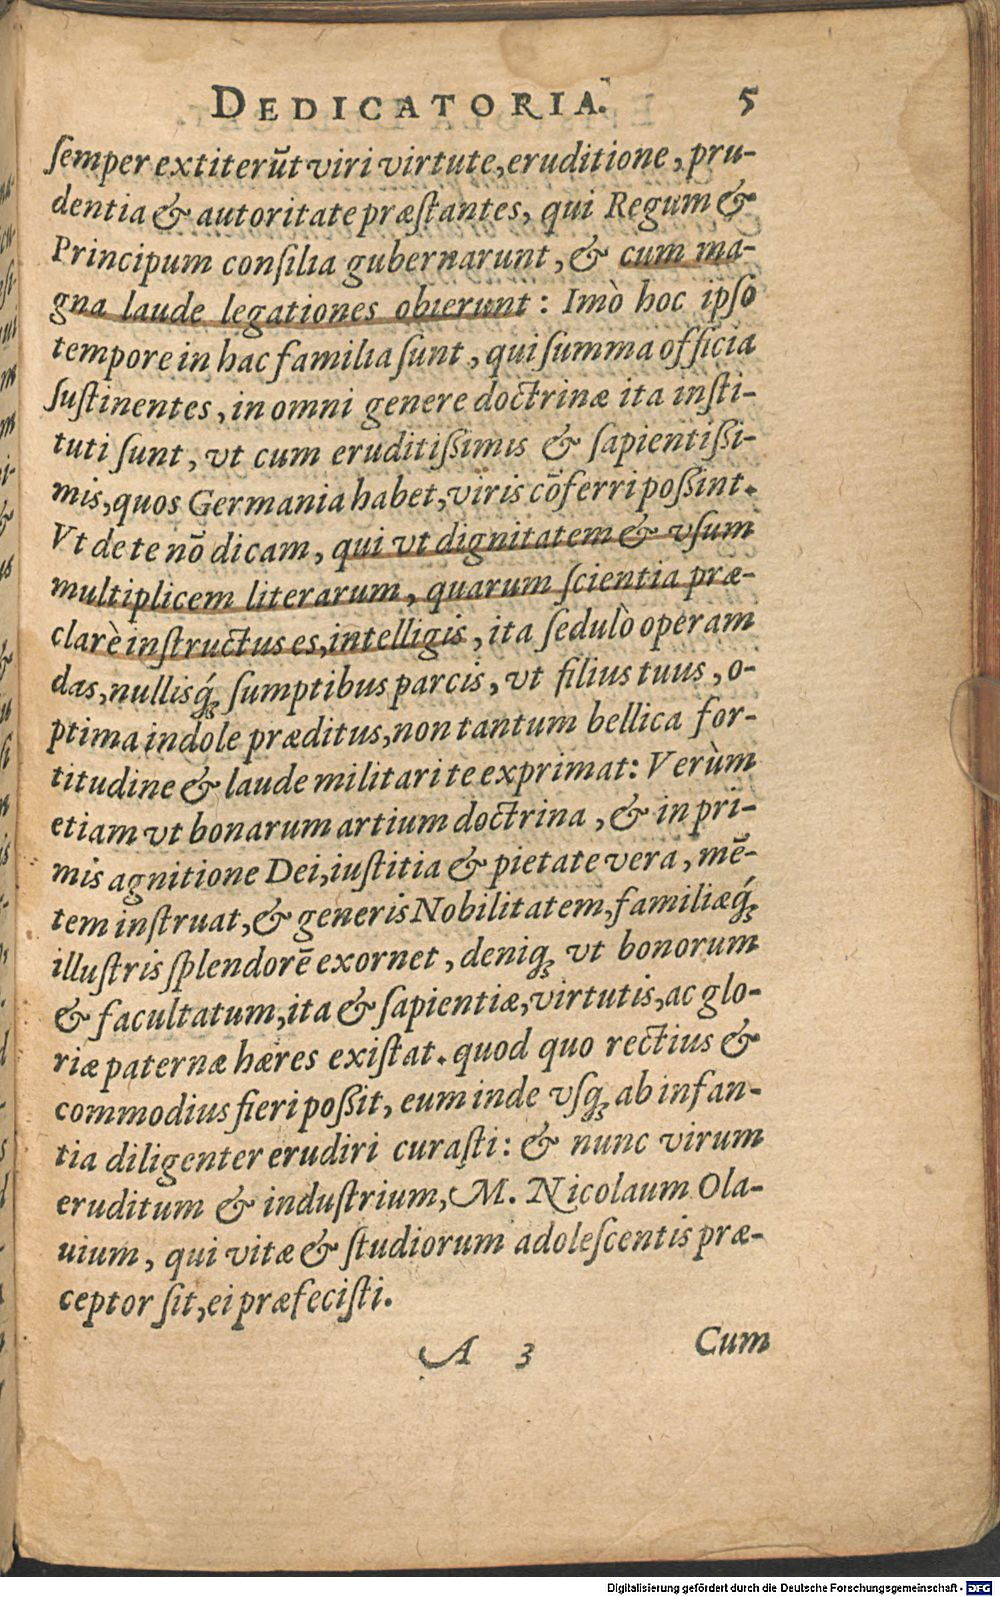 DEDICATORIA. 5
ſemper extiterūt viri virtute, eruditione, pru-
dentia & autoritate præſtantes, qui Regum &
Principum conſilia gubernarunt, & cum ma-
gna laude legationes obierunt: Imò hoc ipſo
tempore in hac familia ſunt, qui ſumma officia
ſuſtinentes, in omni genere doctrinæ ita inſti-
tuti ſunt, vt cum eruditiſſimis & ſapientiſſi-
mis, quos Germania habet, viris cōferri poſſint.
Vt de te nō dicam, qui vt dignitatem & vſum
multiplicem literarum, quarum ſcientia præ-
clarè inſtructus es, intelligis, ita ſedulò operam
das, nullisq́ꝫ ſumptibus parcis, vt filius tuus, o-
ptima indole præditus, non tantum bellica for-
titudine & laude militari te exprimat: Verùm
etiam vt bonarum artium doctrina, & in pri-
mis agnitione Dei, iuſtitia & pietate vera, mē-
tem inſtruat, & generis Nobilitatem, familiæq́ꝫ
illuſtris ſplendorē exornet, deniqꝫ vt bonorum
& facultatum, ita & ſapientiæ, virtutis, ac glo-
riæ paternæ hæres exiſtat. quod quo rectius &
commodius fieri poſſit, eum inde vſqꝫ ab infan-
tia diligenter erudiri curaſti: & nunc virum
eruditum & induſtrium, M. Nicolaum Ola-
uium, qui vitæ & ſtudiorum adoleſcentis præ-
ceptor ſit, ei præfeciſti.
A 3 Cum
Digitalisierung gefördert durch die Deutsche Forschungsgemeinschaft - DFG